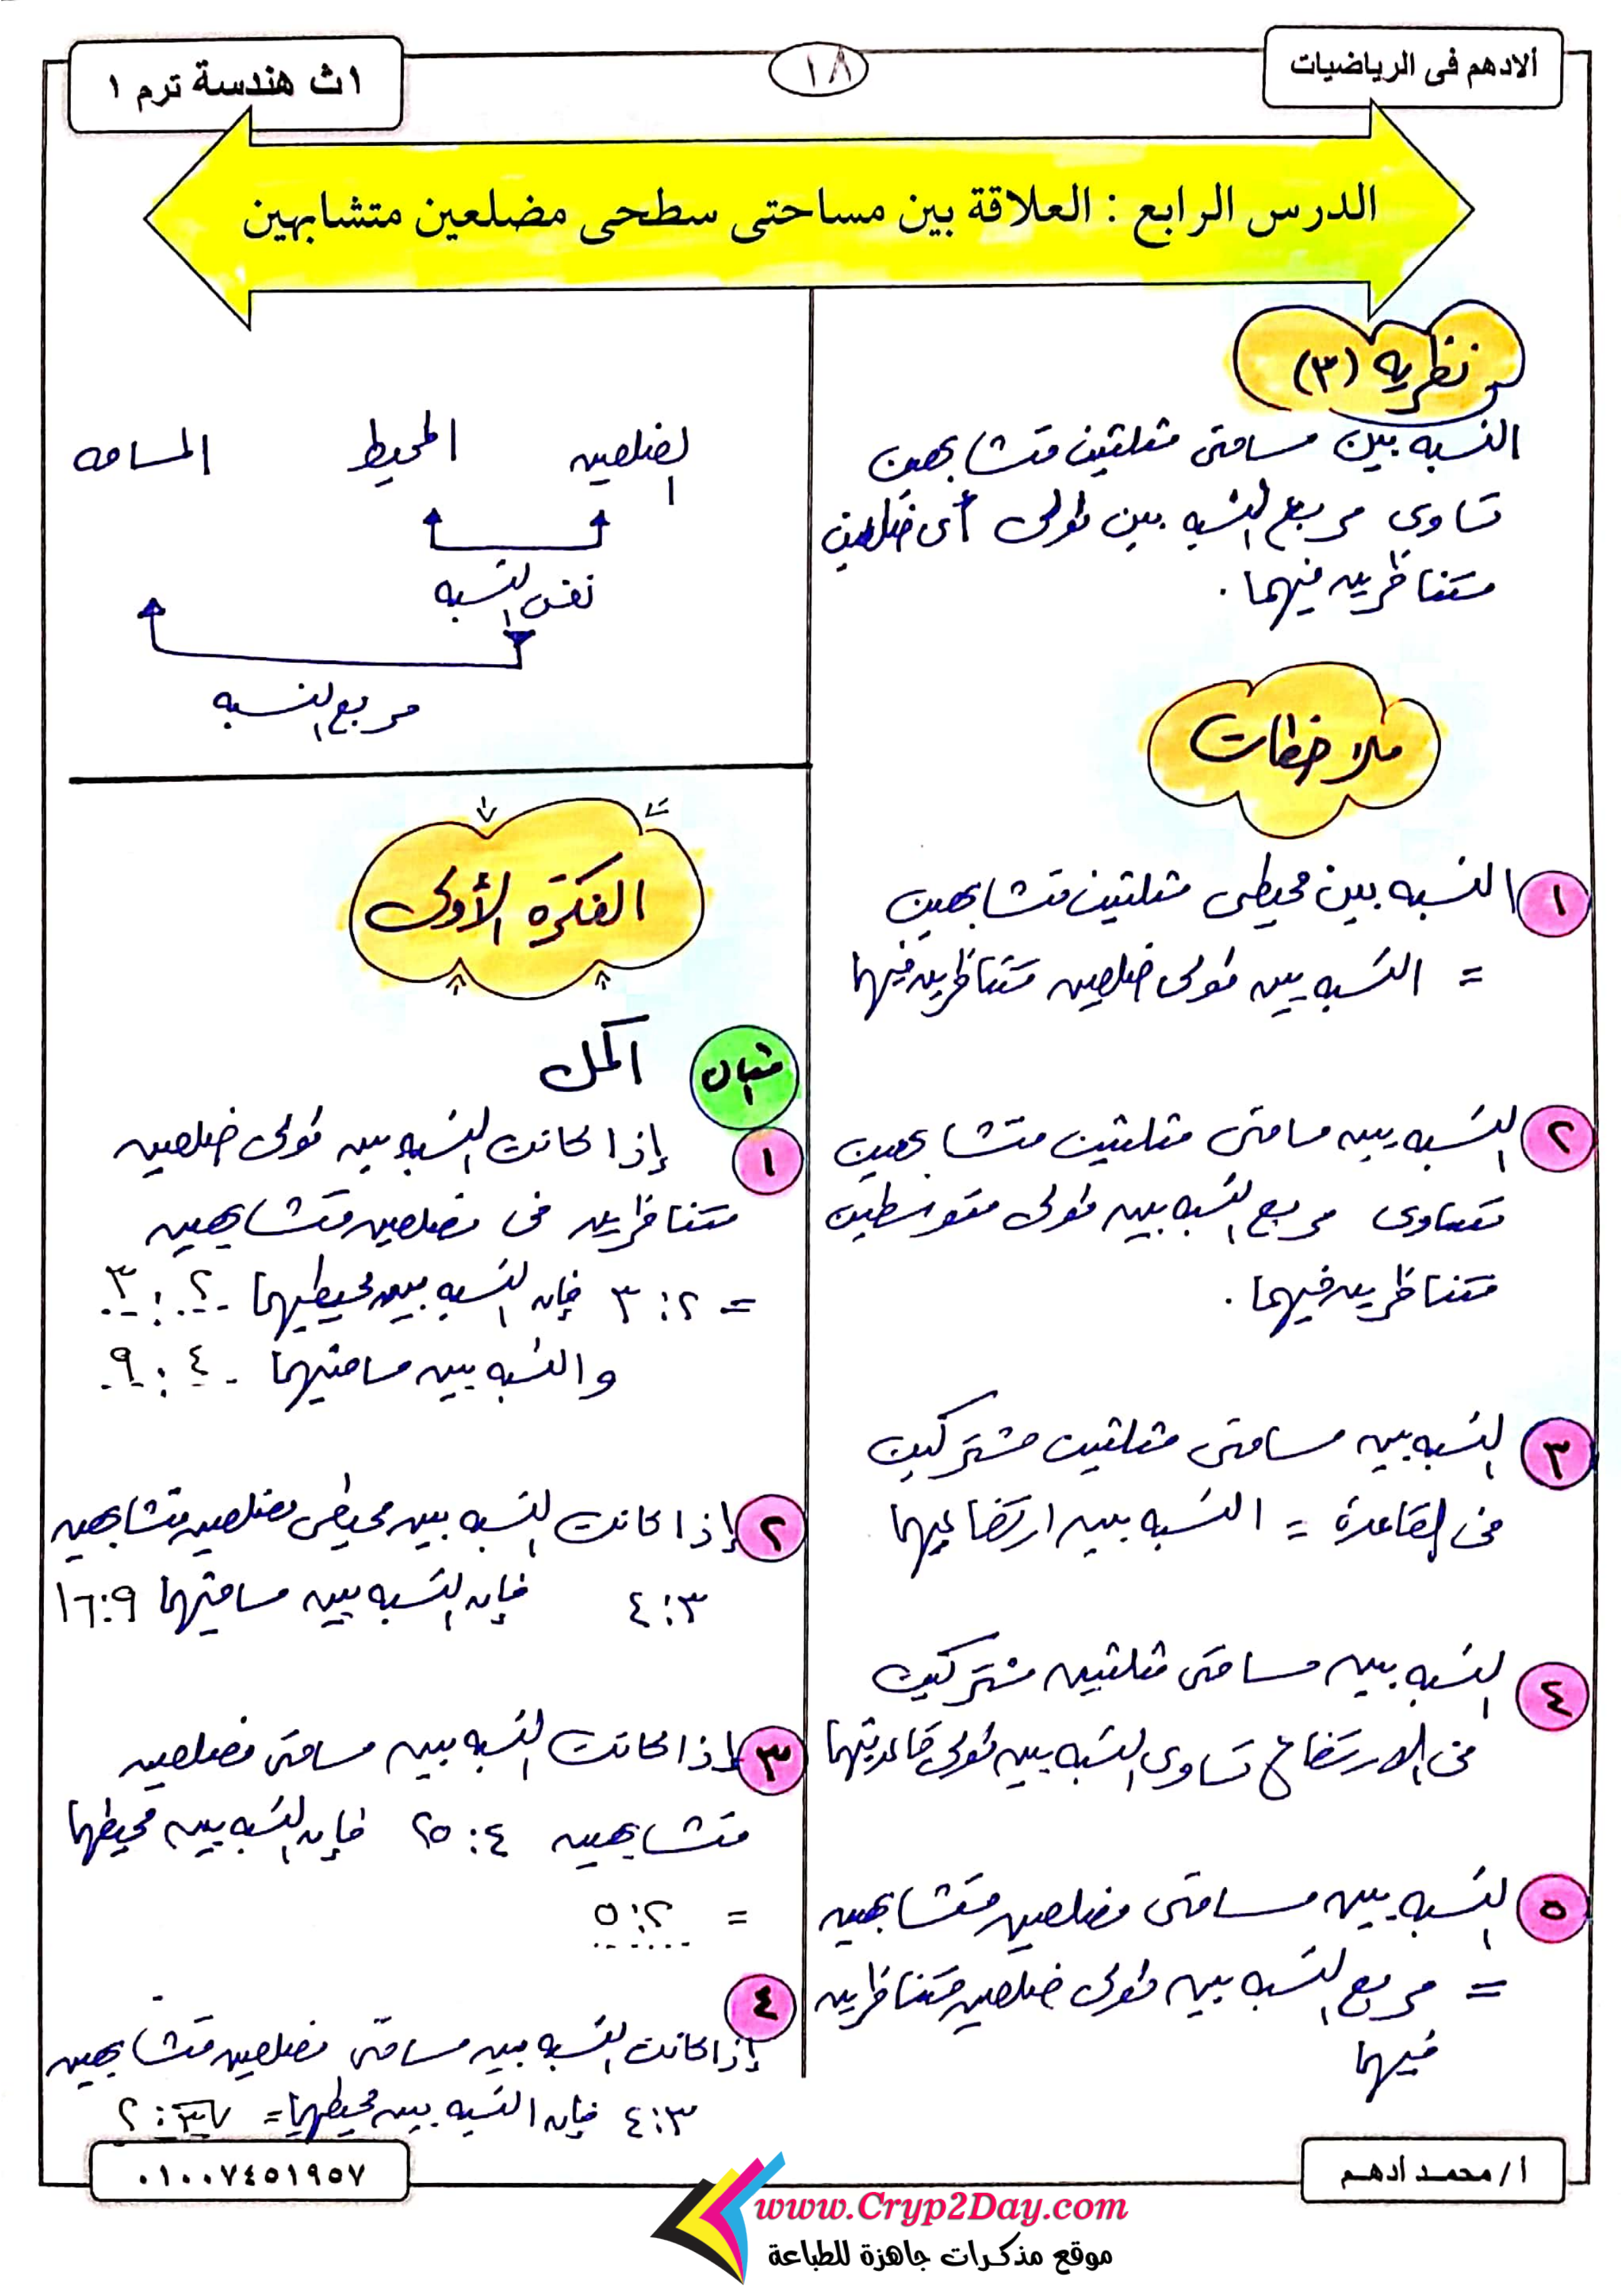 ألادهم فى الرياضيات
١٨
١ث هندسة ترم ١
الدرس الرابع : العلاقة بين مساحتى سطحى مضلعين متشابهين
نظريه (٣)
النسبه بين مساحتى مثلثين متشابهين
تساوى مربع النسبه بين طولى أى ضلعين
متناظرين فيهما .
ملاحظات
١ النسبه بين محيطى مثلثين متشابهين
= النسبه بين طولى ضلعين متناظرين فيهما
٢ النسبه بين مساحتى مثلثين متشابهين
تساوى مربع النسبه بين طولى متوسطين
متناظرين فيهما .
٣ النسبه بين مساحتى مثلثين مشتركين
فى القاعدة = النسبه بين ارتفاعيهما
٤ النسبه بين مساحتى مثلثين مشتركين
فى الارتفاع تساوى النسبه بين طولى قاعدتيهما
٥ النسبه بين مساحتى مضلعين متشابهين
= مربع النسبه بين طولى ضلعين متناظرين
فيهما
الضلعين المحيط المساحه
نفس النسبه
مربع النسبه
الفكرة الأولى
مثال اكمل
١ إذا كانت النسبه بين طولى ضلعين
متناظرين فى مضلعين متشابهين
= ٢ : ٣ فإن النسبه بين محيطيهما ٢ : ٣
والنسبه بين مساحتيهما ٤ : ٩
٢ إذا كانت النسبه بين محيطى مضلعين متشابهين
٣ : ٤ فإن النسبه بين مساحتيهما ٩ : ١٦
٣ إذا كانت النسبه بين مساحتى مضلعين
متشابهين ٤ : ٢٥ فإن النسبه بين محيطهما
= ٢ : ٥
٤
إذا كانت النسبه بين مساحتى مضلعين متشابهين
٣ : ٤ فإن النسبه بين محيطهما = √٣ : ٢
أ / محمـد أدهـم
٠١٠٠٧٤٥١٩٥٧
www.Cryp2Day.com
موقع مذكرات جاهزة للطباعة